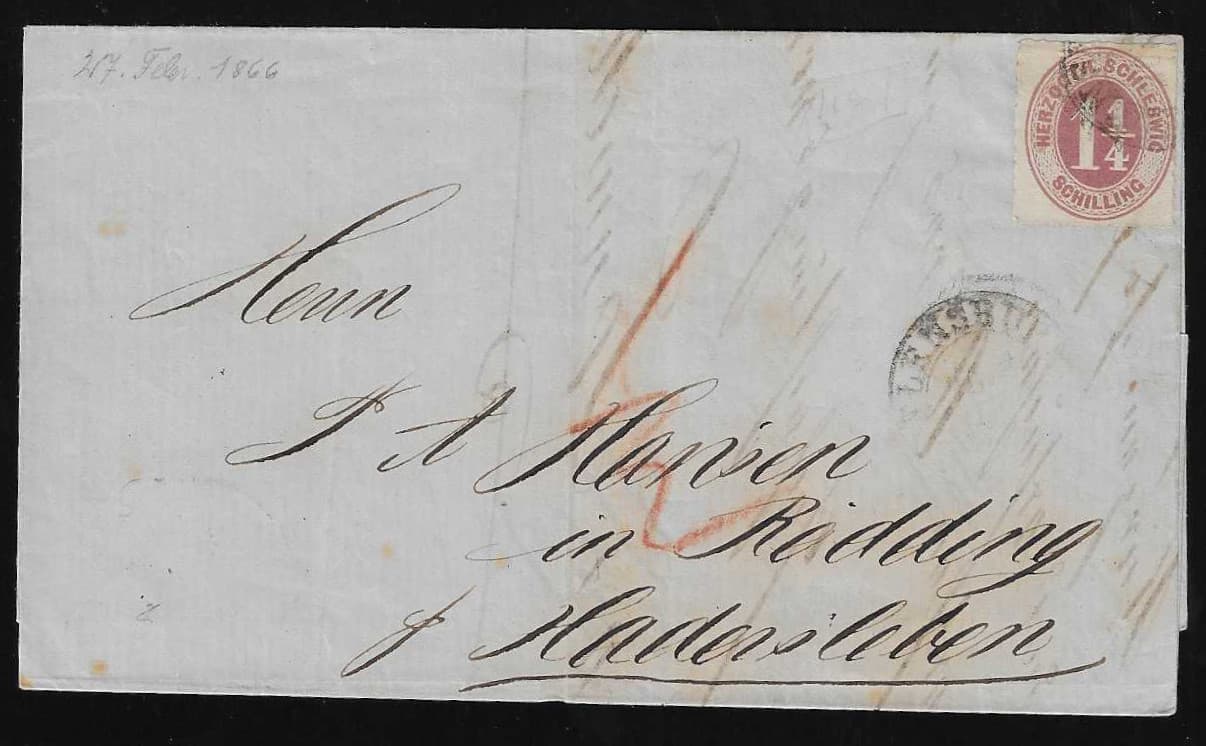 27. Febr. 1866
HERZOGTH. SCHLESWIG
1 1/4
SCHILLING
FLENSBUR
Herrn
P A Hansen
in Rödding
p Hadersleben